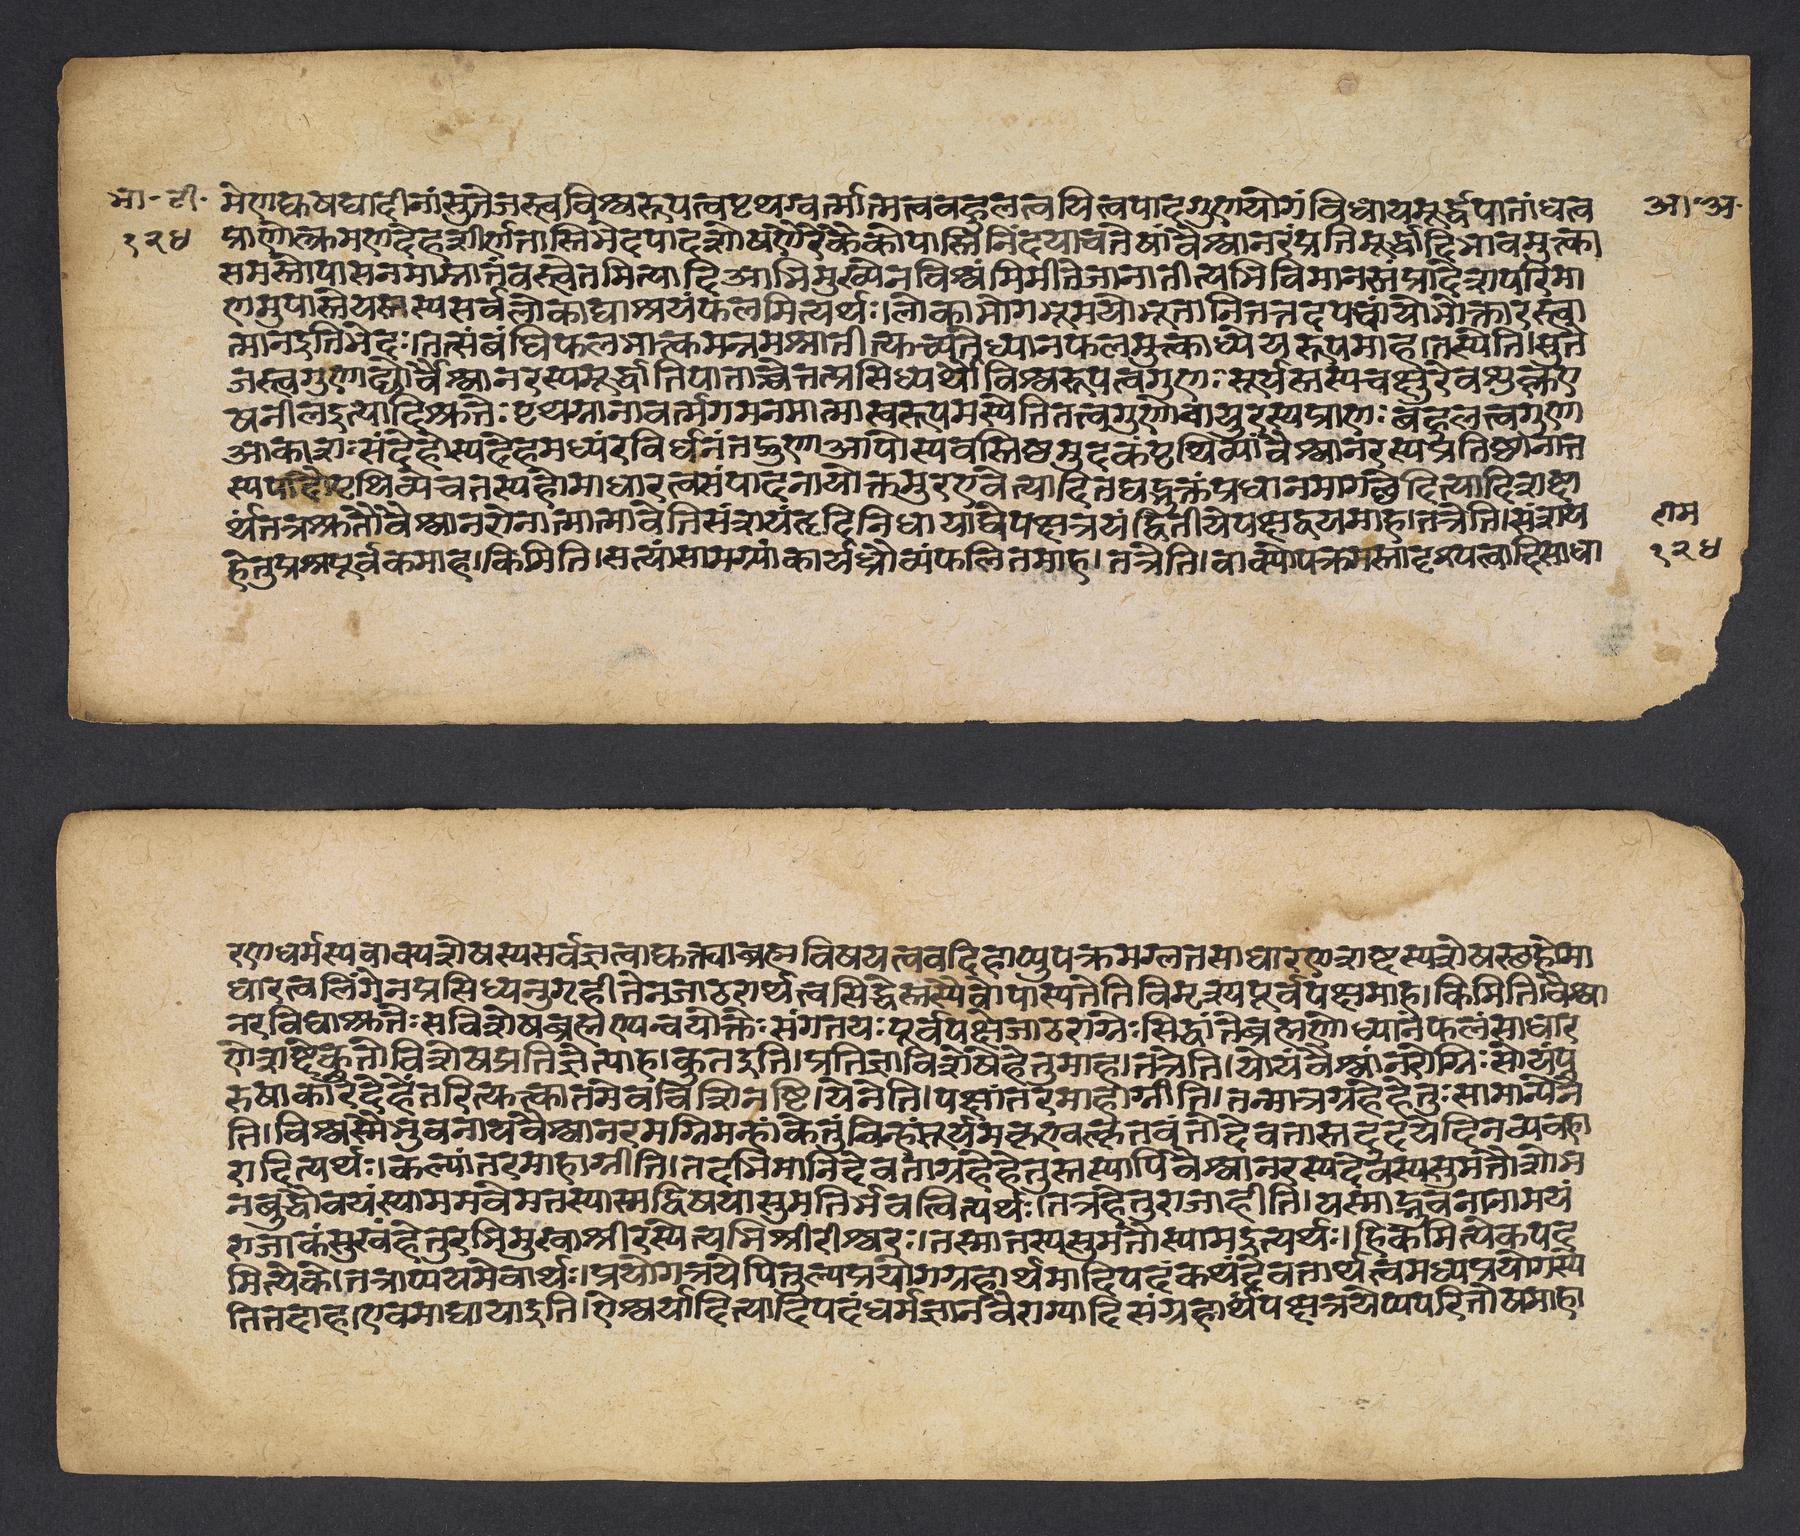 भा॰ टी॰
१२४
मेणद्युषद्यादीनांसुतेजस्त्वविश्वरूपत्वपृथग्वर्त्मात्मत्वबहुलत्वयित्वपादगुणयोगंविधायमूर्द्धपातांधत्व
प्राणोत्क्रमणदेहशीर्णतास्तिभेदपादशोषंणैरेकैकोपास्तिनिंदयाचतेषांवैश्वानरंप्रतिमूर्द्धादिभावमुत्का
समस्तोपासनमाम्नातंयस्त्वेतमित्यादिआभिमुख्येनविश्वंमिमीतेजानातीत्यभिविमानस्तंप्रादेशपरिमा
णमुपास्तेयस्तस्यसर्वलोकाद्याश्रयंफलमित्यर्थः।लोकाभोगभूमयोभूतानितत्तदपचयोभोक्तारस्त्वा
त्मानइतिभेदः।तत्संबंधिफलभात्कमन्नमश्नातीत्कच्यतेध्यानफलमुत्काध्येयरूपमाह।तस्येति।सुते
जस्त्वगुणाद्यौर्वैश्वानरस्यमूर्द्धातिपाताच्चेतत्प्रसिध्यर्थोविश्वरूपत्वगुणः सूर्यस्तस्यचक्षुरेवशुक्लए
षनीलइत्यादिश्रुतेः पृथग्नानावर्त्मगमनमात्मास्वरूपमस्येतितत्त्वगुणोवायुरस्यप्राणः बहुलत्वगुण
आकाशः संदेहोस्यदेहमध्यंरविर्धनंतद्गुणाआपोस्यवस्तिष्ठमुदकंपृथिव्यांवैश्वानरस्यप्रतिष्ठानात्त
स्यपादौपृथिव्येवतस्यहोमाधारत्वसंपादनायोक्तमुरएवेत्यादितद्यद्भक्तंप्रथममागच्छेदित्यादिशष्टा
र्थंतत्रश्रुतौवैश्वानरोनात्मात्मावेतिसंशयंहृदिनिधायाद्येपक्षत्रयंद्वितीयेपक्षद्वयमाह।तत्रेति।संशय
हेतुप्रश्नपूर्वकमाह।किमिति।सत्यांसामग्र्यांकार्यध्रौव्यंफलितमाह।तत्रेति।वाक्योपक्रमस्तादृश्यत्वादिसाधा
आ॰अ॰
राम
१२४
रणधर्मस्यवाक्यशेषस्यसर्वज्ञत्वाद्यक्त्याब्रह्मविषयत्ववदिहाप्युपक्रमग्लतसाधारणशष्टस्यशेषस्छहोमा
धारत्वलिंगेनप्रसिध्यनुगृहीतेनजाठरार्थत्वसिद्धेस्तस्यैवोपास्यतेतिविमृश्यपूर्वपक्षमाह।किमिति।वैश्वा
नरविद्याश्रुतेः सविशेषब्रह्मण्यन्वयोक्तेः संगतयः पूर्वपक्षेजाठराग्नेः सिद्धांतेब्रह्मणोध्यानंफलंसाधार
णेशष्टेकुतोविशेषप्रतिज्ञेत्याह।कुतइति।प्रतिज्ञाविशेषेहेतुमाह।तत्रेति।योयंवैश्वानरोग्निः सोयंपु
रुषाकारेदेहेंतरित्युत्कातमेवविशिनष्टि।येनेति।पक्षांतरमाहाग्नीति।तन्मात्रग्रहेहेतुः सामान्येने
ति।विश्वस्मैभुवनायवैश्वानरमग्निमन्हांकेतुंचिन्हंसूर्यमकृण्वत्कृतवंतोदेवतास्तदुदयेदिनव्यवहा
रादित्यर्थः।कल्पांतरमाहाग्नीति।तदभिमानिदेवताग्रहेहेतुस्तस्यापिवैश्वानरस्यदेवस्यसुमतौशोभ
नबुद्धौवयंस्यामभवेमतस्यास्मद्विषयासुमतिर्भवत्वित्यर्थः।तत्रहेतुराजाहीति।यस्माद्भुवनानामयं
राजाकंसुखंहेतुरभिमुखाश्रीरस्येत्यभिश्रीरीश्वरः।तस्मात्तस्यसुमतौस्यामइत्यर्थः।हिकमित्येकपद
मित्येके।तत्राप्ययमेवार्थः।प्रयोगत्रयेपितुल्यप्रयोगग्रहार्थमादिपदंकथंदेवतार्थत्वमध्यप्रयोगस्ये
तितदाह।एवमाद्यायाइति।ऐश्वर्यादित्यादिपदंधर्मज्ञानवैराग्यादिसंग्रहार्थंपक्षत्रयेप्यपरितोषमाहा